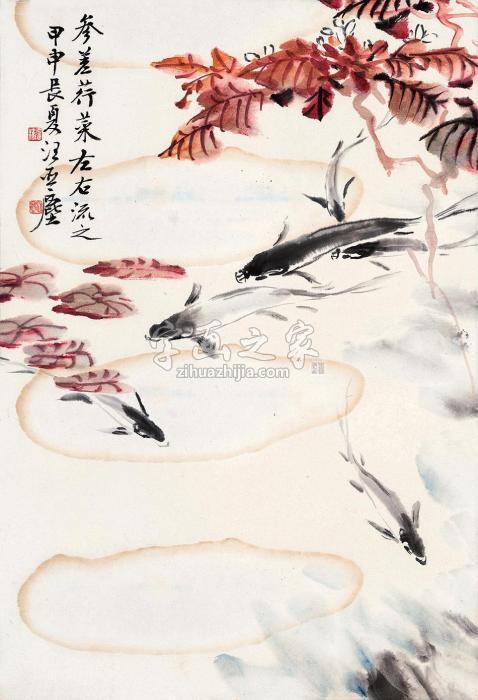 参差荇菜左右流之
甲申長夏汪亞塵
字画之家
zihuazhijia.com